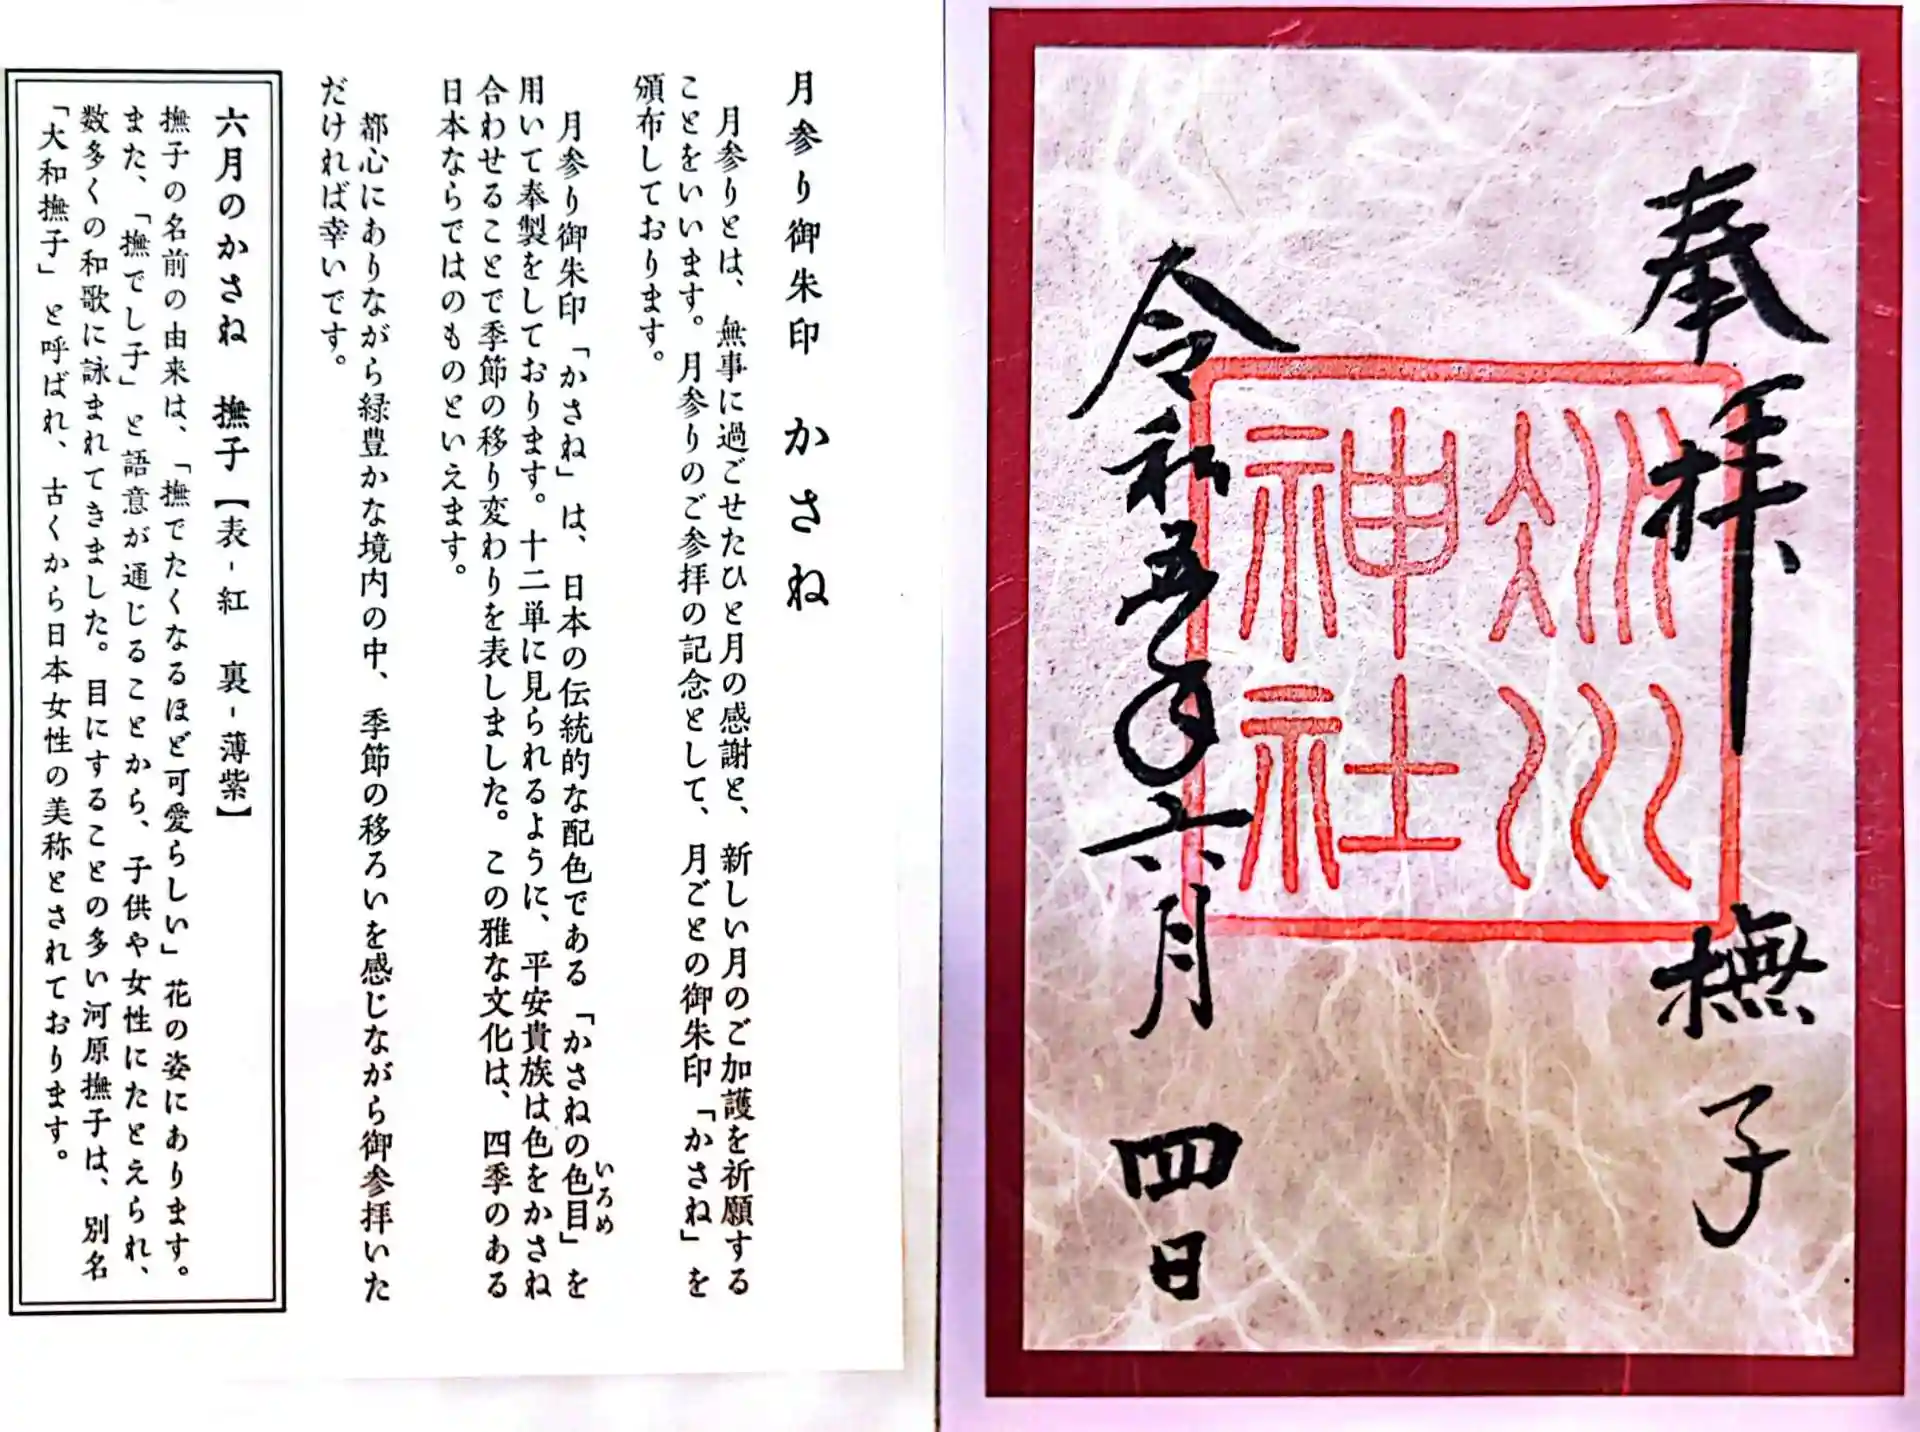 月参り御朱印　かさね
月参りとは、無事に過ごせたひと月の感謝と、新しい月のご加護を祈願する
ことをいいます。月参りのご参拝の記念として、月ごとの御朱印「かさね」を
頒布しております。
月参り御朱印「かさね」は、日本の伝統的な配色である「かさねの色目」を
いろめ
用いて奉製をしております。十二単に見られるように、平安貴族は色をかさね
合わせることで季節の移り変わりを表しました。この雅な文化は、四季のある
日本ならではのものといえます。
都心にありながら緑豊かな境内の中、季節の移ろいを感じながら御参拝いた
だければ幸いです。
六月のかさね　撫子【表-紅　裏-薄紫】
撫子の名前の由来は、「撫でたくなるほど可愛らしい」花の姿にあります。
また、「撫でし子」と語意が通じることから、子供や女性にたとえられ、
数多くの和歌に詠まれてきました。目にすることの多い河原撫子は、別名
「大和撫子」と呼ばれ、古くから日本女性の美称とされております。
奉拝　撫子
氷川
神社
令和五年六月四日